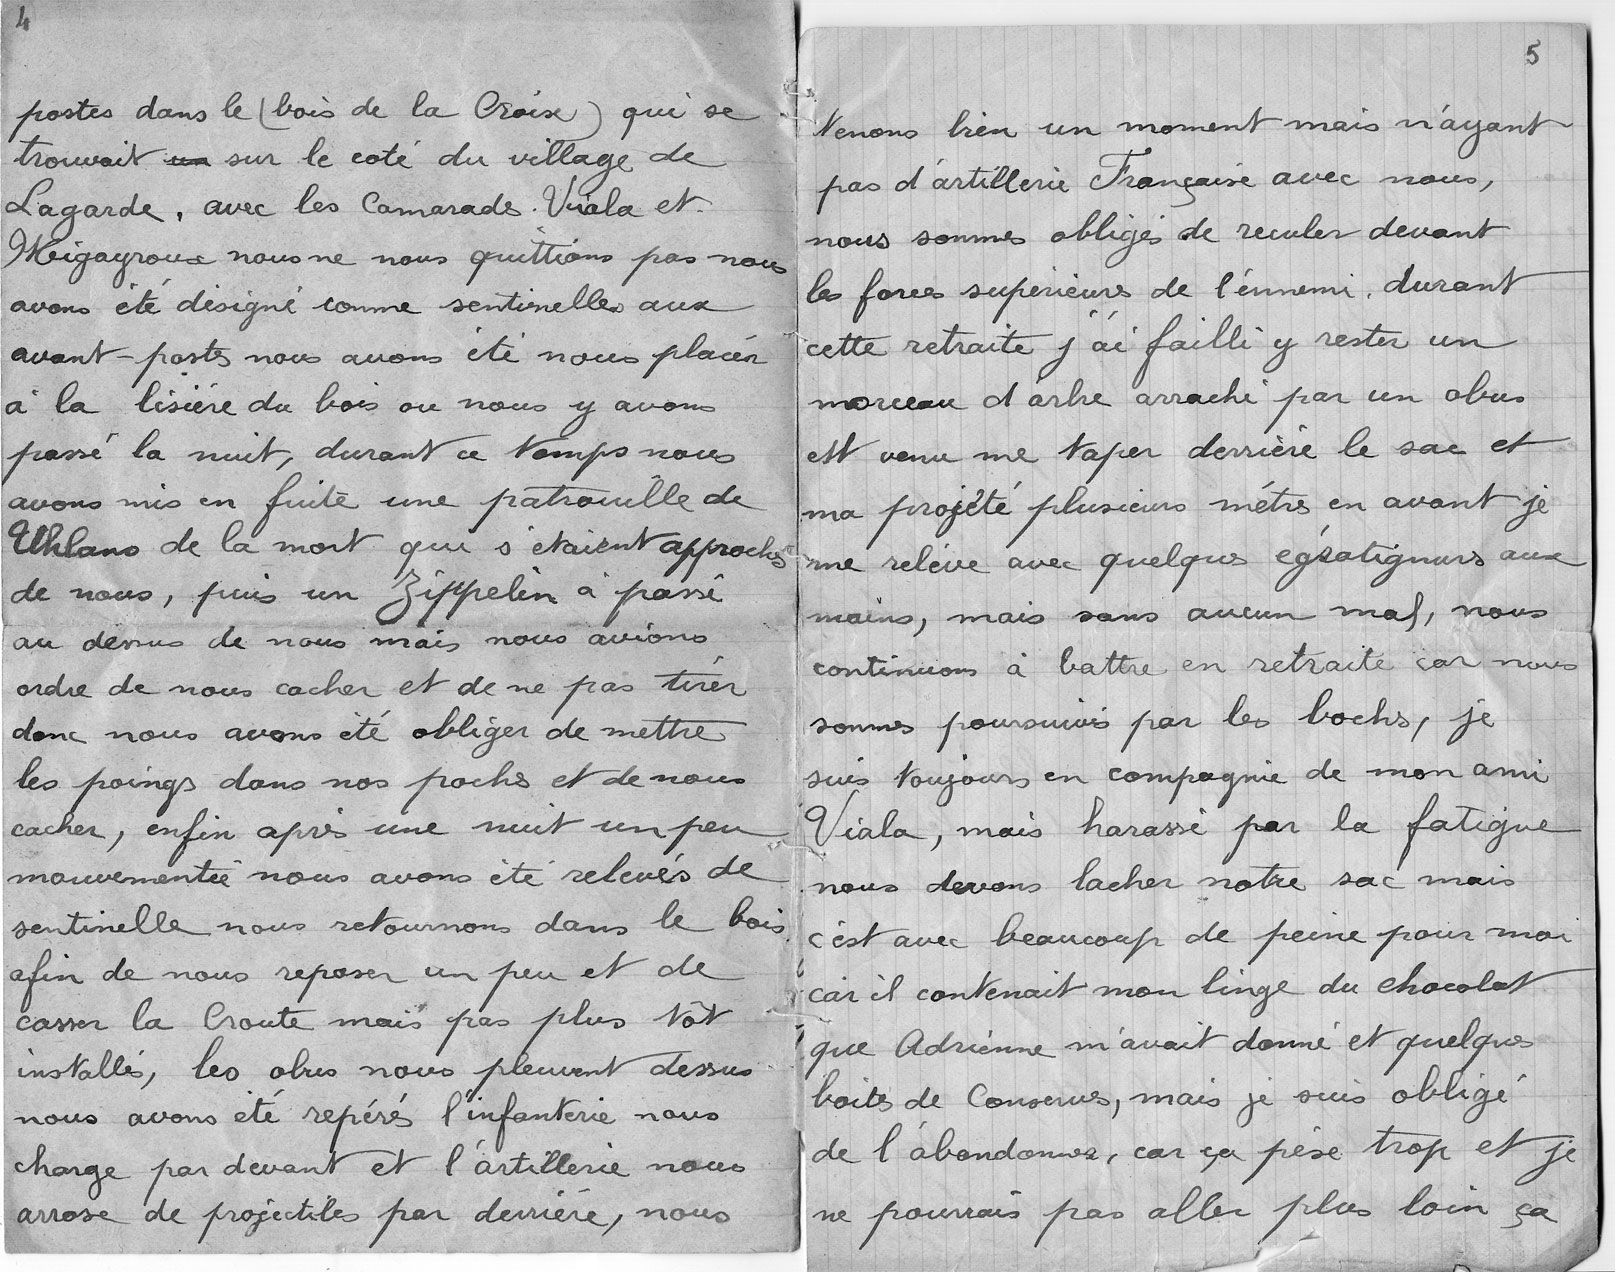 4
postes dans le (bois de la Croix) qui se
trouvait un sur le coté du village de
Lagarde, avec les Camarades. Viala et
Meigayroux nous ne nous quittions pas nous
avons été désigné comme sentinelles aux
avant-postes nous avons été nous placér
à la lisiére du bois ou nous y avons
passé la nuit, durant ce temps nous
avons mis en fuite une patrouille de
Uhlans de la mort qui s'étaient approchés
de nous, puis un Zippelin à passé
au dessus de nous mais nous avions
ordre de nous cacher et de ne pas tirér
donc nous avons été obliger de mettre
les poings dans nos poches et de nous
cacher, enfin aprés une nuit un peu
mouvementée nous avons été relevés de
sentinelle nous retournons dans le bois
afin de nous reposer un peu et de
casser la Croute mais pas plus tôt
installés, les obus nous pleuvent dessus
nous avons été repérés l'infanterie nous
charge par devant et l'artillerie nous
arrose de projectiles par derriére, nous
5
tenons bien un moment mais n'ayant
pas d'artillerie Française avec nous,
nous sommes obligés de reculer devant
les forces supérieures de l'énnemi, durant
cette retraite j'ai failli y rester un
morceau d'arbre arraché par un obus
est venu me taper derriére le sac et
ma projété plusieurs métres en avant je
me reléve avec quelques égratignures aux
mains, mais sans aucun mal, nous
continuons à battre en retraite car nous
sommes poursuivis par les boches, je
suis toujours en compagnie de mon ami
Viala, mais harassé par la fatigue
nous devons lacher notre sac mais
c'est avec beaucoup de peine pour moi
car il contenait mon linge du chocolat
que Adriénne m'avait donné et quelques
boites de Conserves, mais je suis obligé
de l'abandonner, car ça pése trop et je
ne pourrais pas aller plus loin ça